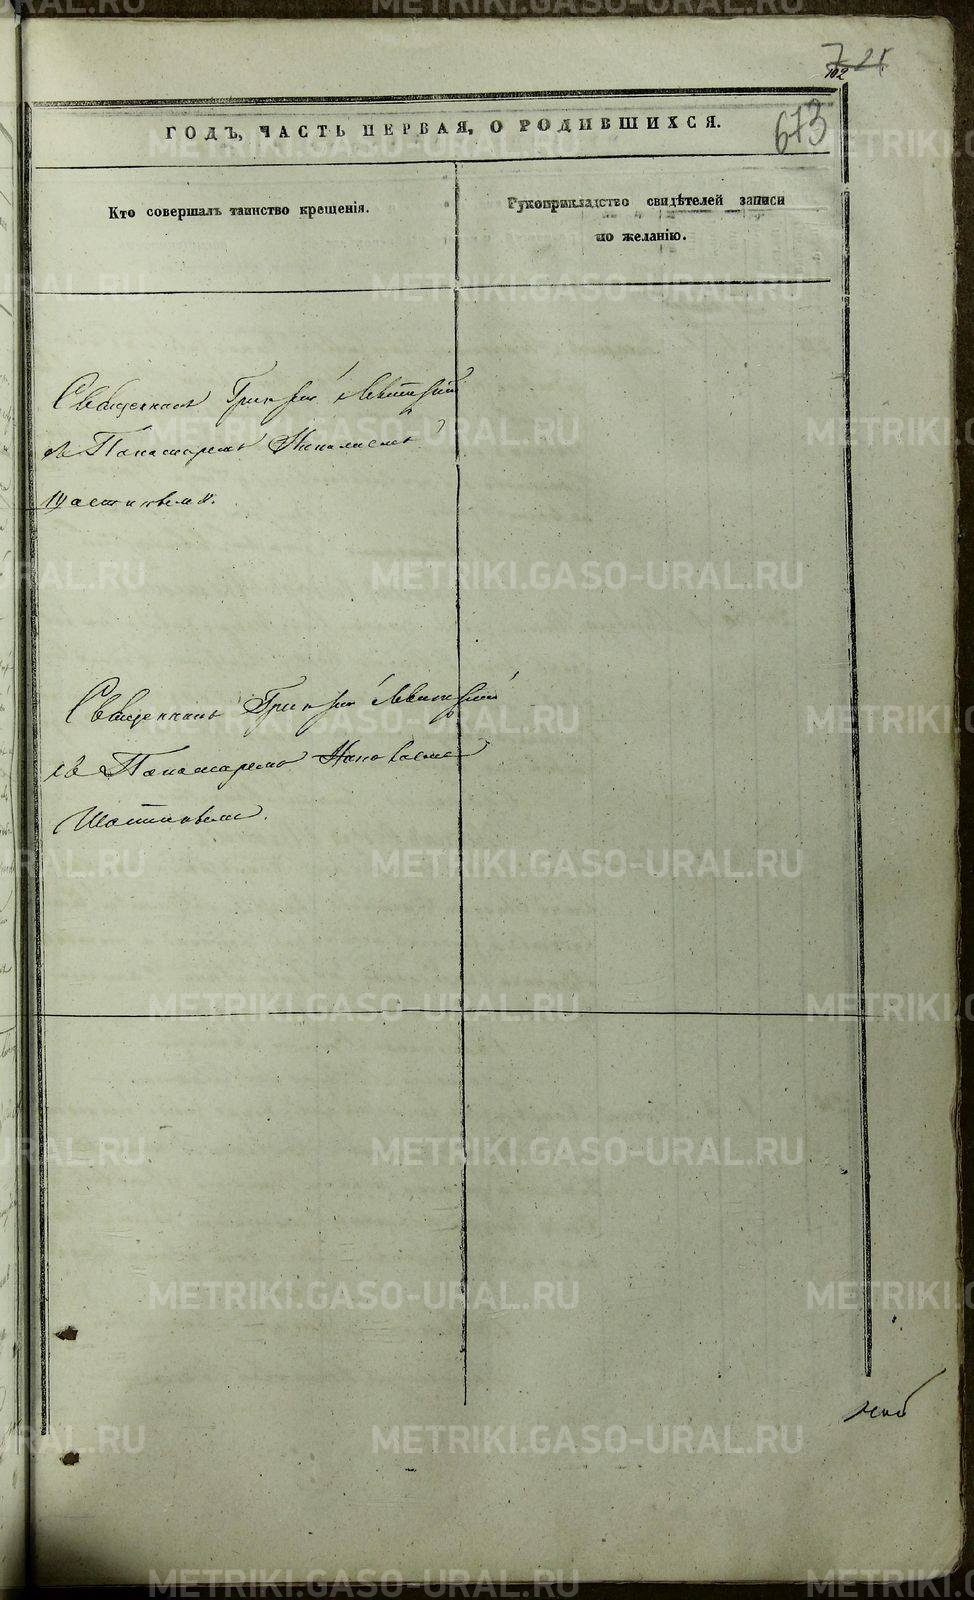 102
673
ГОДЪ, ЧАСТЬ ПЕРВАЯ, О РОДИВШИХСЯ.
Кто совершалъ таинство крещенія.
Рукоприкладство свидѣтелей записи
по желанію.
Священникъ Григорій Левитскій
съ Пономаремъ Николаемъ
Священникъ Григорій Левитскій
съ Пономаремъ
METRIKI.GASO-URAL.RU